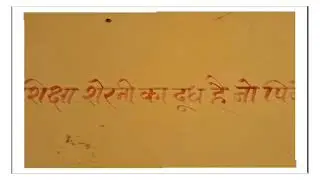 शिक्षा शेरनी का दूध है जो